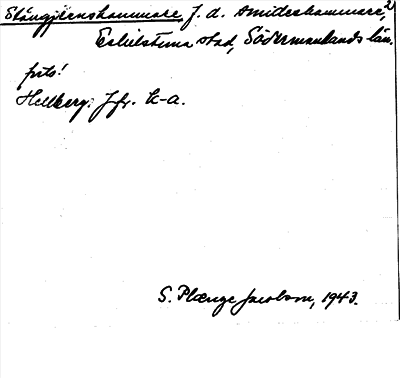 Stångjärnshammare f. d. smideshammare, 2)
Eskilstuna stad, Södermanlands län.
foto!
Hellberg: Jfr. k-a.
S. Plænge Jacobson, 1943.